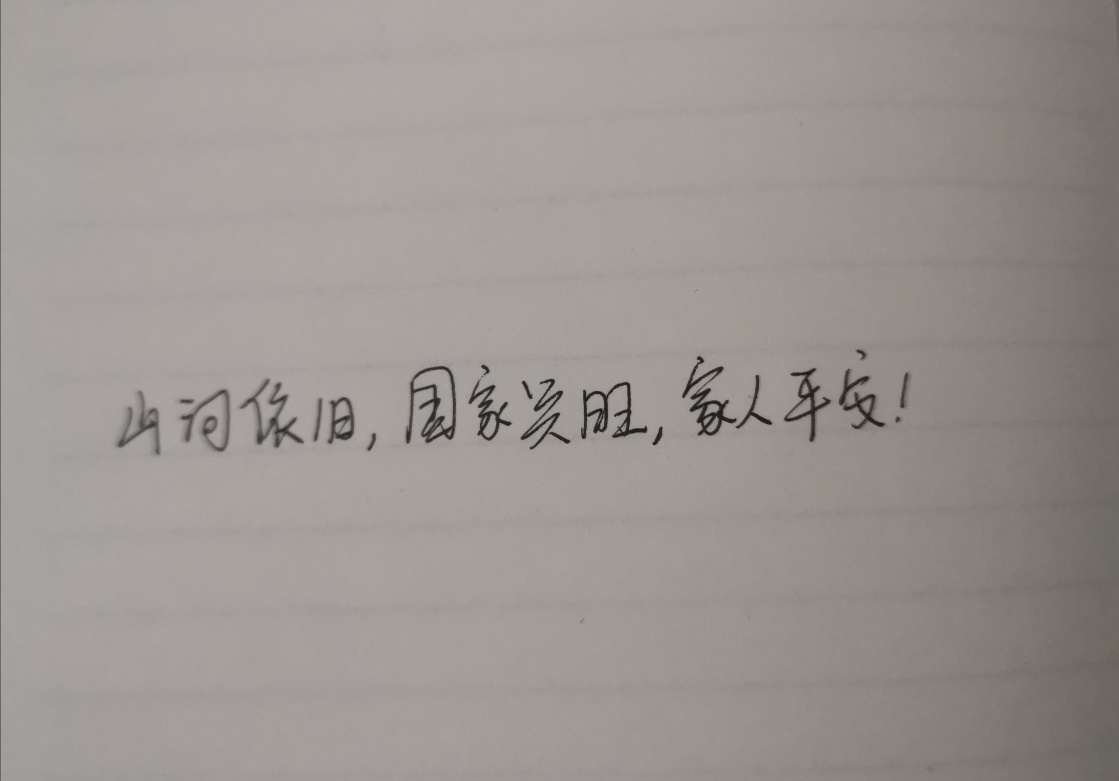 山河依旧,国家兴旺,家人平安!